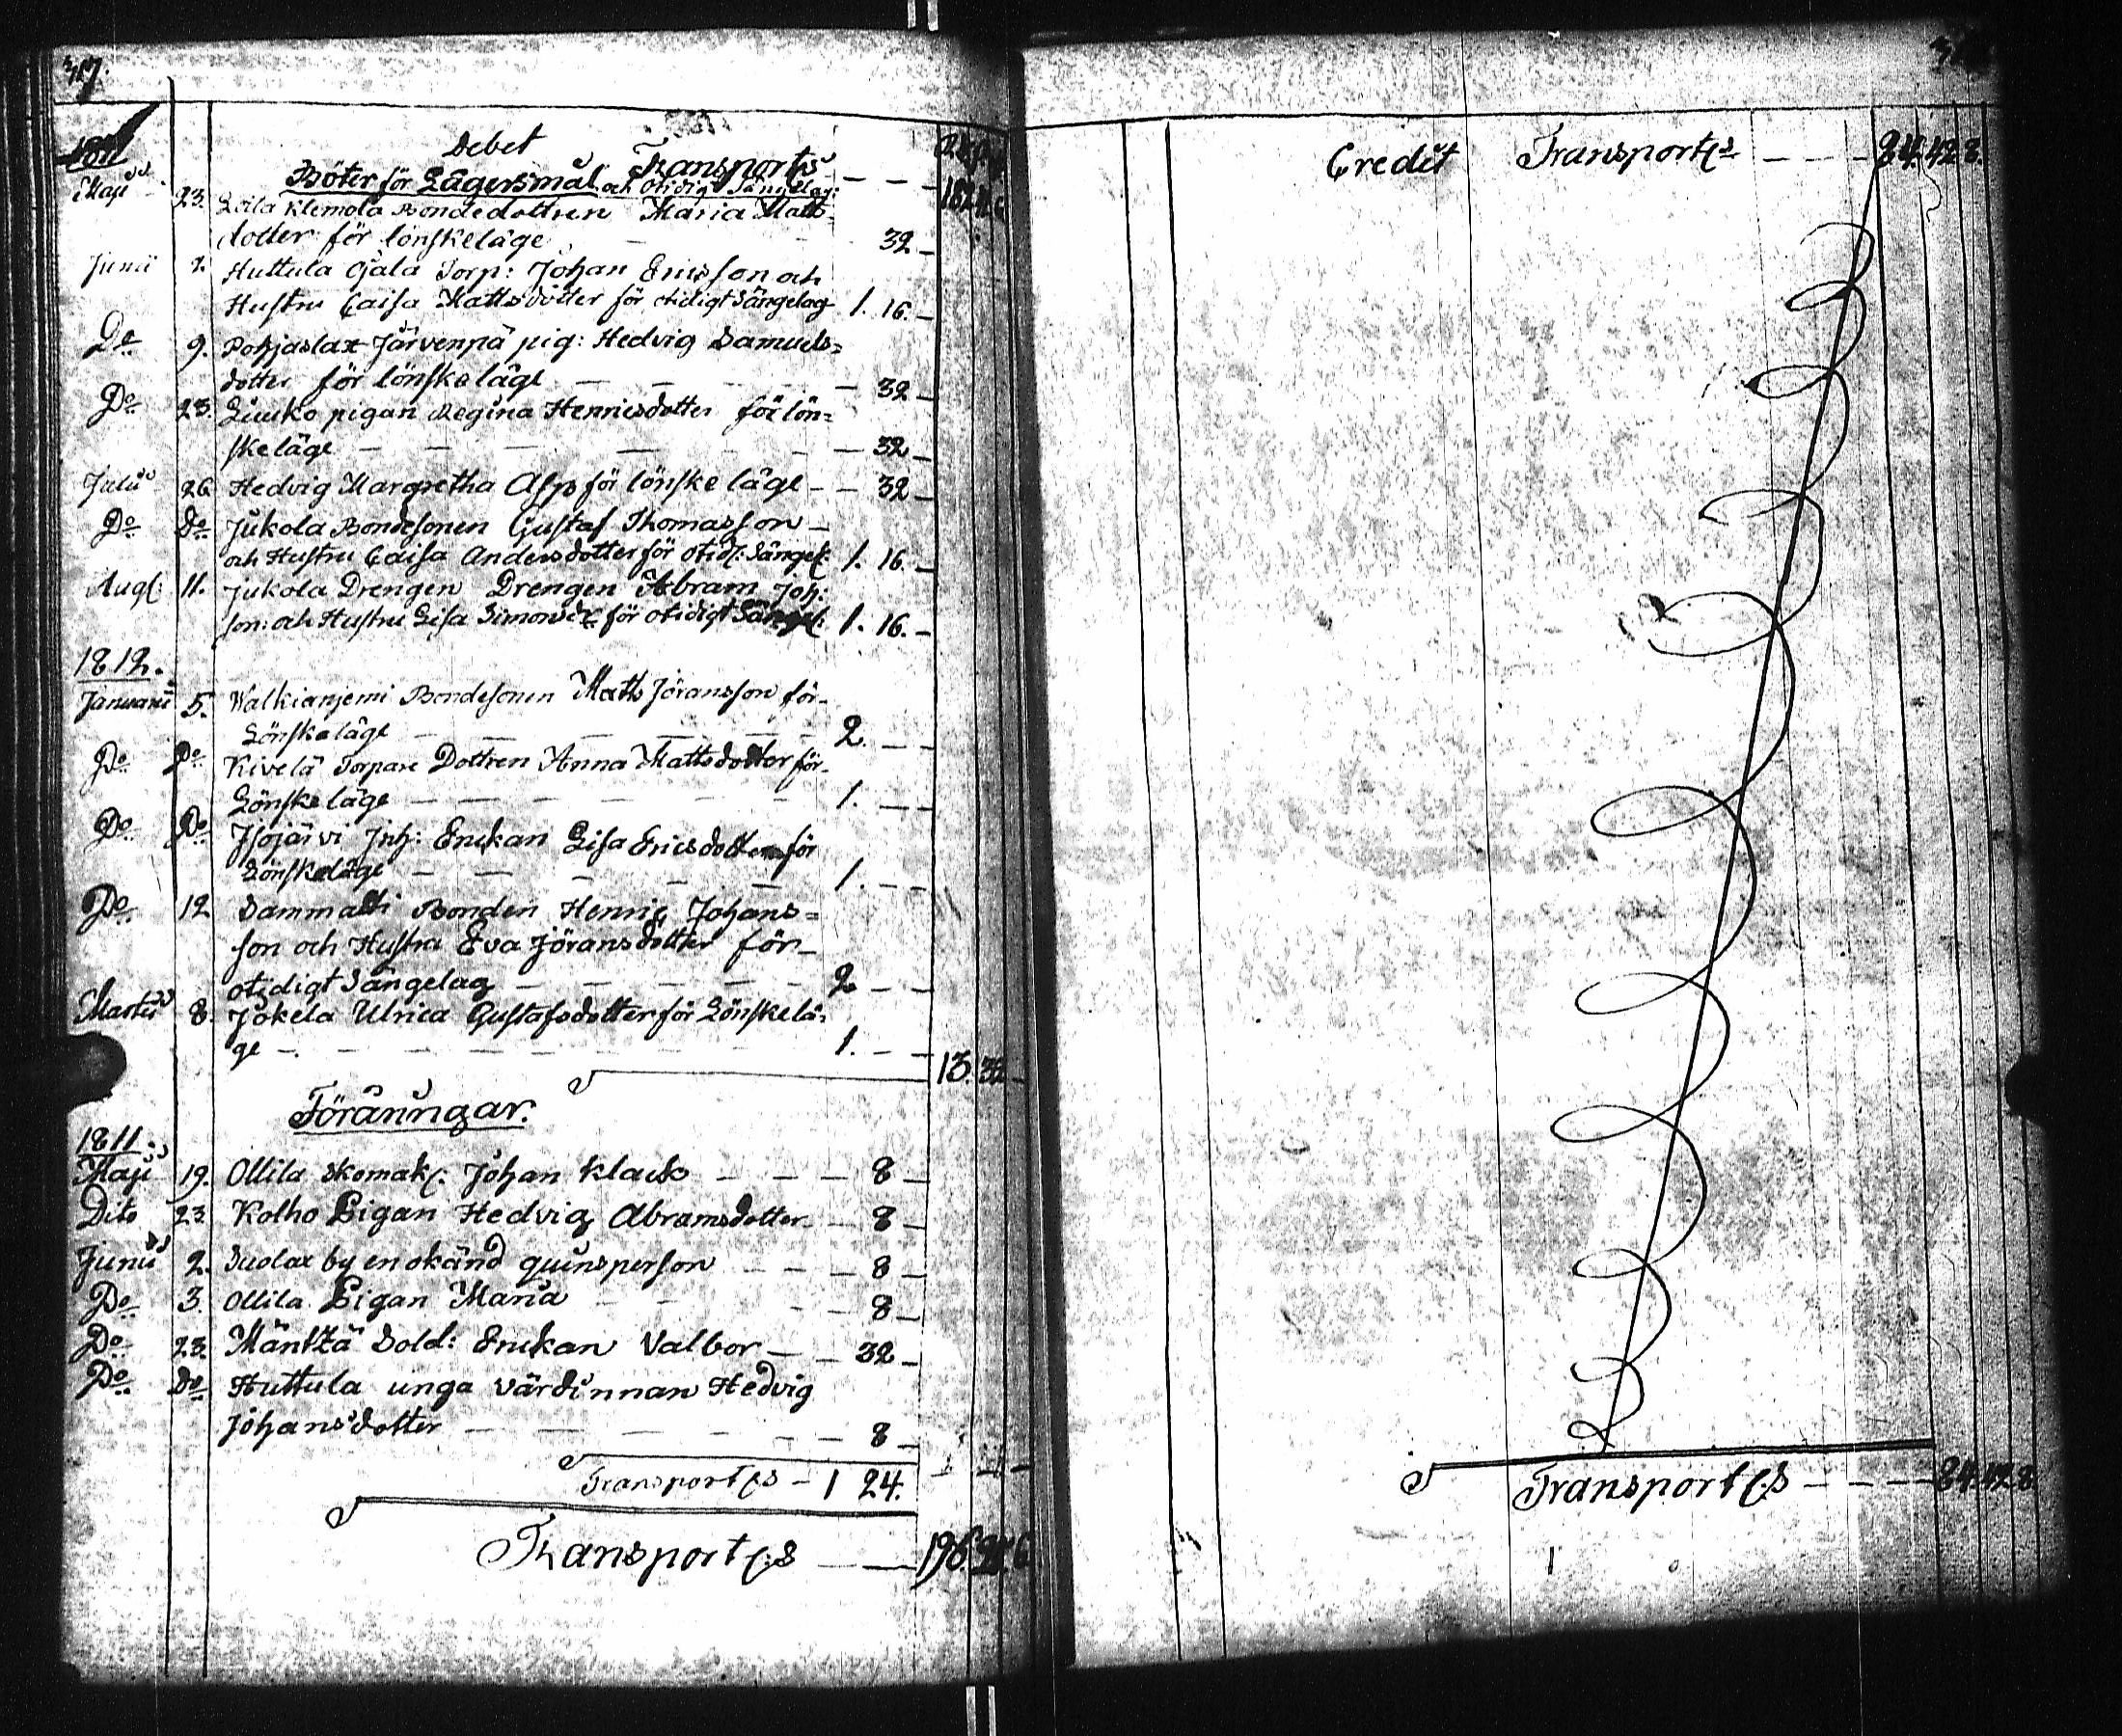 317.
Debet
1811 Transport/s
Böter för Lägersmål och otidigt Sängelag: — — — 182
Maji 23. Klemola Bondedottren Maria Matts-
dotter för lönskeläge — — 32 —
Junii 2. Huttula Gjala Torp: Johan Ericsson och
Hustru Caisa Mattsdotter för otidigt Sängelag 1. 16. —
Do 9. Pohjaslax Järvenpä pig: Hedvig Samuels=
dotter för lönskeläge — — — — 32 —
Do 23. Liuuko pigan Regina Henricsdotter för lön=
skeläge — — — — — — 32 —
Julii 26 Hedvig Margretha Asp för lönskeläge — — 32 —
Do do Jukola Bondesonen Gustaf Thomasson —
och Hustru Caisa Andersdotter för otid: Sängel: 1. 16. —
Aug: 11. Jukola Drengen Drengen Abram Joh:
son: och Hustru Lisa Simonsdr för otidigt Sängel: 1. 16. —
1812.
Januarii 5. Walkianjemi Bondesonen Matts Jöransson för
Lönskeläge — — — — — 2. — —
Do Do Kivelä Torpare Dottren Anna Mattsdotter för
Lönskeläge — — — — — 1. — —
Do Do Isojärvi Inh: Enckan Lisa Ericsdotter för
Lönskeläge — — — — — 1. — —
Do 12 Sammatti Bonden Henric Johans=
son och Hustru Eva Jöransdotter för
otidigt Sängelag — — — — — 2 — —
Martii 8. Jokela Ulrica Gustafsdotter för Lönskelä=
ge — — — — — — — 1. — —
13. 32 —
Föräningar.
1811.
Maji 19. Ollila Skomak: Johan Klack — — — 8 —
Dito 23. Kolho Pigan Hedvig Abramsdotter — 8 —
Junii 2. Suolax by en okänd qvinsperson — — — 8 —
Do 3. Ollila Pigan Maria — — — — 8 —
Do 23. Mänttä Sold: Enckan Valbor — — 32 —
Do do Huttula unga värdinnan Hedvig
Johansdotter — — — — — — 8 —
Transport/s — 1 24.
Transport/s — — 196.
Credit Transport/s — — — 84. 42 8.
Transport/s — — — 84. 42 8.